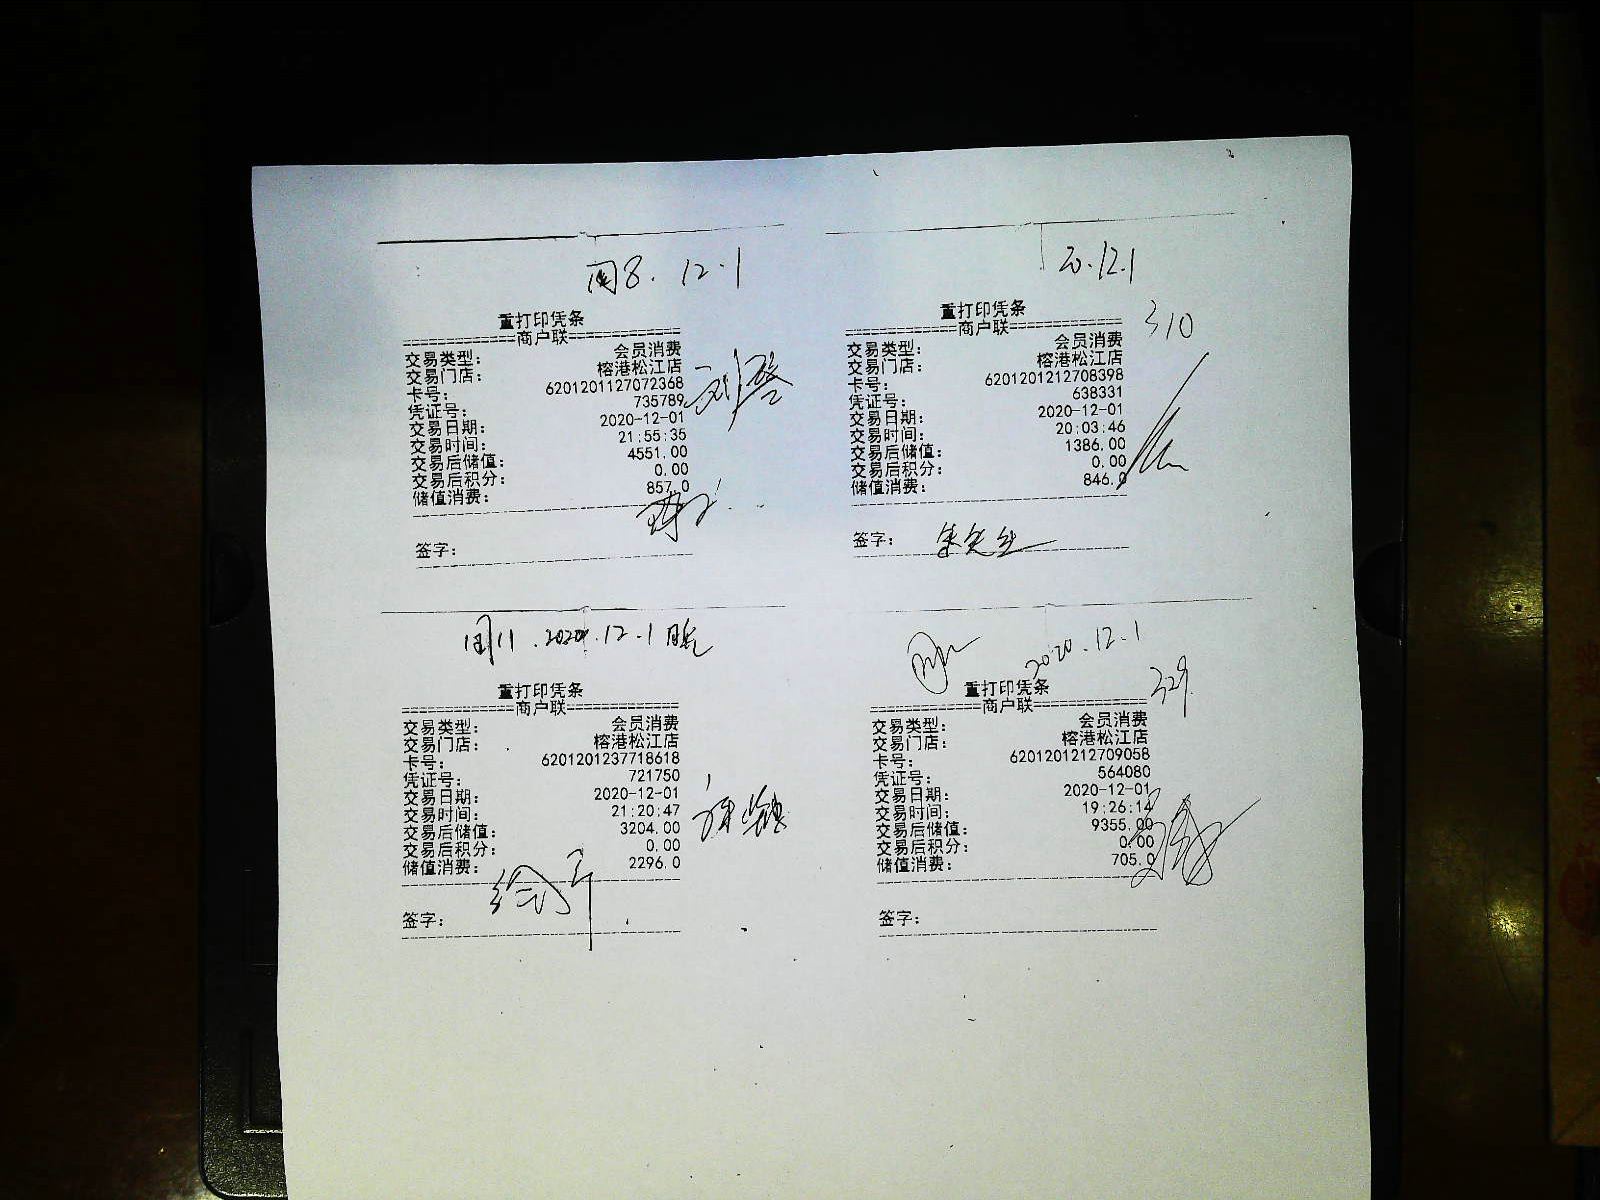 周8. 12.1
重打印凭条
============商户联============
交易类型: 会员消费
交易门店: 榕港松江店
卡号: 6201201127072368
凭证号: 735789
交易日期: 2020-12-01
交易时间: 21:55:35
交易后储值: 4551.00
交易后积分: 0.00
储值消费: 857.0
签字:
20.12.1
310
重打印凭条
============商户联============
交易类型: 会员消费
交易门店: 榕港松江店
卡号: 6201201212708398
凭证号: 638331
交易日期: 2020-12-01
交易时间: 20:03:46
交易后储值: 1386.00
交易后积分: 0.00
储值消费: 846.0
签字: 朱先生
2020.12.1
重打印凭条
============商户联============
交易类型: 会员消费
交易门店: 榕港松江店
卡号: 6201201237718618
凭证号: 721750
交易日期: 2020-12-01
交易时间: 21:20:47
交易后储值: 3204.00
交易后积分: 0.00
储值消费: 2296.0
签字:
2020.12.1
329
重打印凭条
============商户联============
交易类型: 会员消费
交易门店: 榕港松江店
卡号: 6201201212709058
凭证号: 564080
交易日期: 2020-12-01
交易时间: 19:26:14
交易后储值: 9355.00
交易后积分: 0.00
储值消费: 705.0
签字: